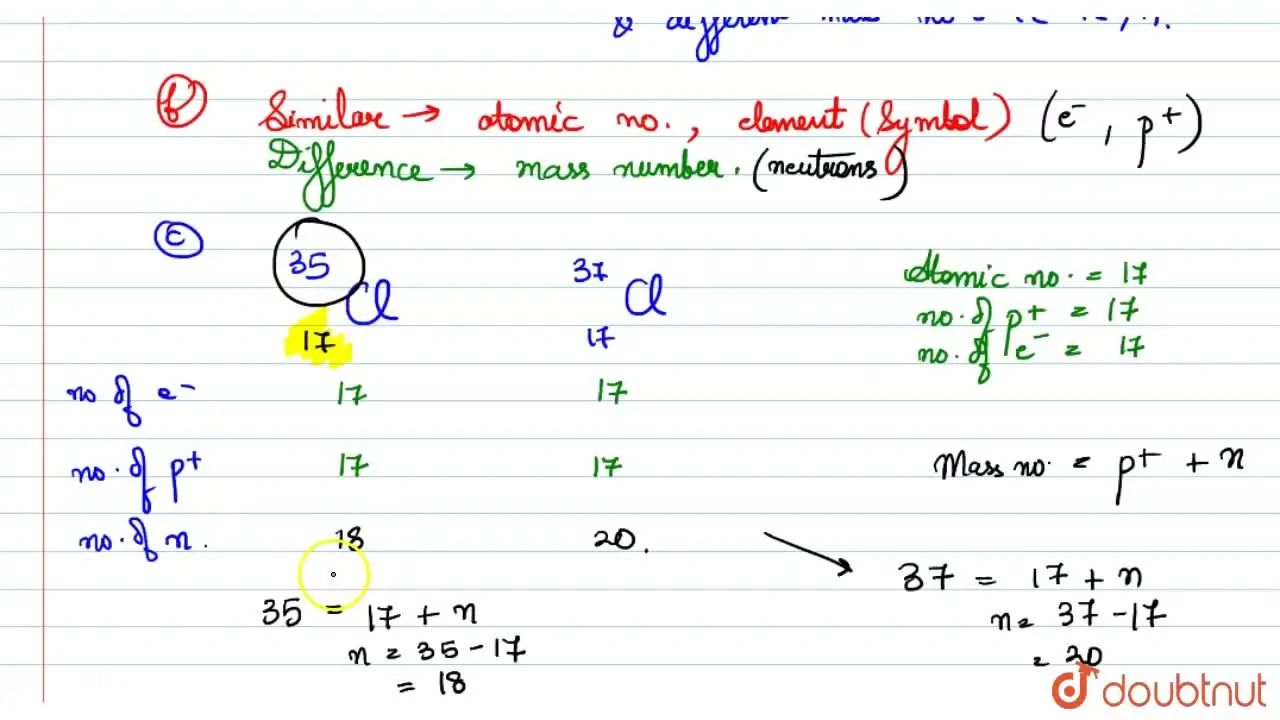 & different mass no
(b) Similar → atomic no., element (Symbol) (e⁻, p⁺)
Difference → mass number. (neutrons)
(c) 35 37
Cl Cl Atomic no. = 17
17 17 no. of p⁺ = 17
no. of e⁻ = 17
no of e⁻ 17 17
no. of p⁺ 17 17 Mass no. = p⁺ + n
no. of n. 18 20.
37 = 17 + n
35 = 17 + n n = 37 - 17
n = 35 - 17 = 20
= 18
doubtnut